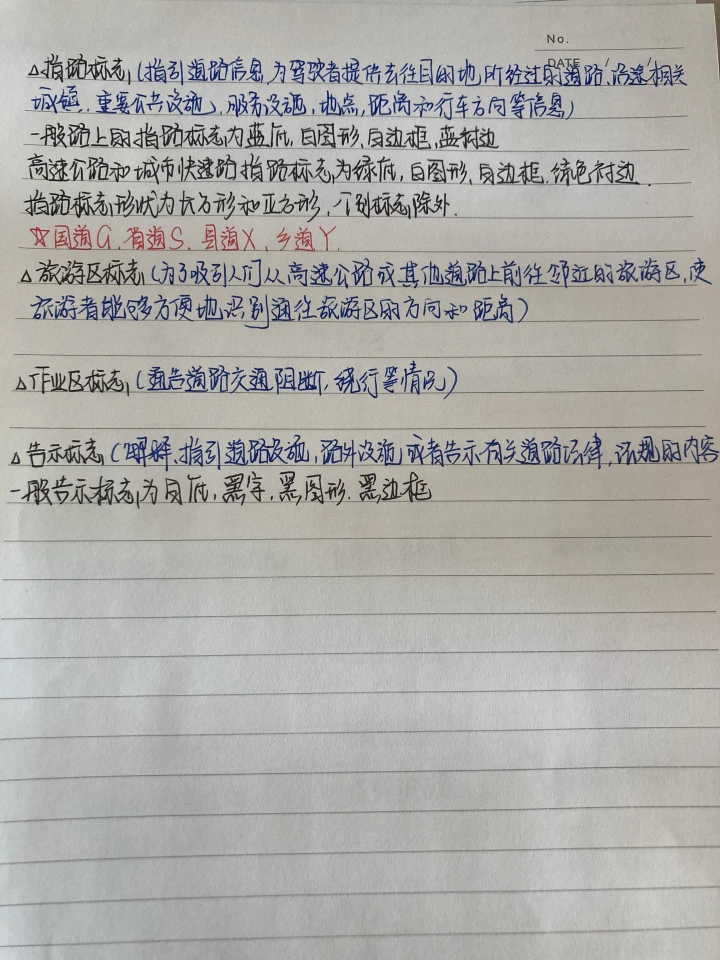 No.
DATE / /
△指路标志(指引道路信息,为驾驶者提供去往目的地,所经过的道路、沿途相关
城镇、重要公共设施、服务设施,地点,距离和行车方向等信息)
一般路上的指路标志为蓝底,白图形、白边框,蓝衬边
高速公路和城市快速路指路标志,为绿底,白图形、白边框、绿色衬边.
指路标志,形状为长方形和正方形,个别标志除外.
☆国道G、省道S、县道X、乡道Y.
△旅游区标志(为了吸引人们从高速公路或其他道路上前往邻近的旅游区,使
旅游者能够方便地识别通往旅游区的方向和距离)
△作业区标志,(通告道路交通阻断,绕行等情况)
△告示标志(解释、指引道路设施,路外设施,或者告示有关道路法律,法规的内容
一般告示标志,为白底,黑字,黑图形.黑边框